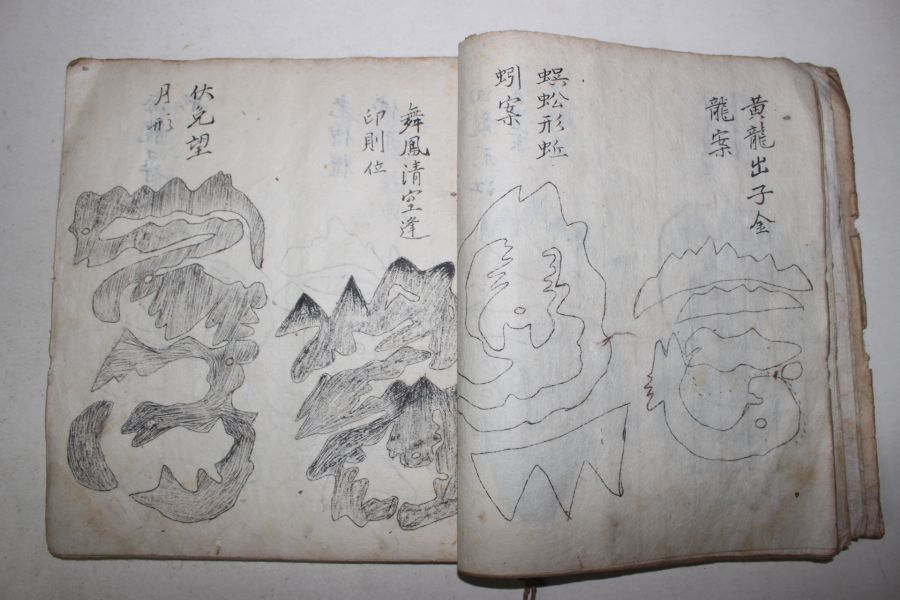 黃龍出子金
龍案
蜈蚣形蚯
蚓案
舞鳳清空逢
印則位
伏兔望
月形